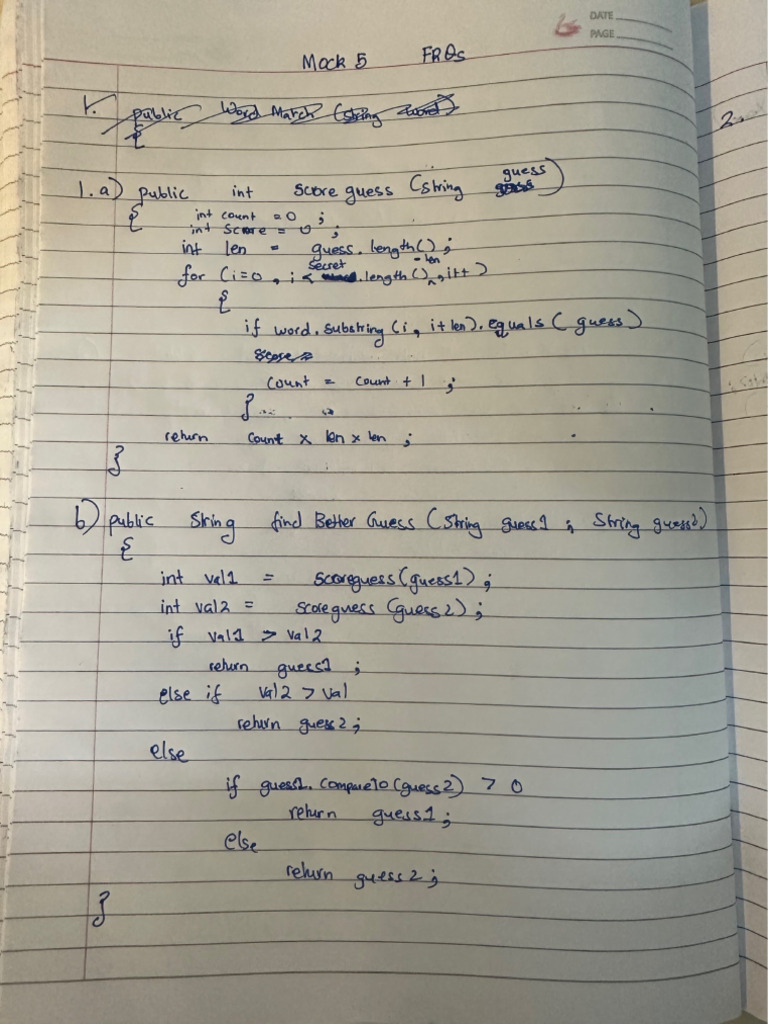 DATE
PAGE
Mock 5 FRQs
1. public Word Match (string word)
{
2.
1.a) public int score guess (String guess)
{ int count = 0 ;
int score = 0 ;
int len = guess.length() ;
for (i=0 , i < secret.length() - len , i++ )
{
if word.substring (i, i+len).equals ( guess)
score =
count = count + 1 ;
}
return count x len x len ;
}
b) public String find Better Guess (String guess1 ; String guess2)
{
int val1 = scoreguess(guess1) ;
int val2 = scoreguess (guess2) ;
if val1 > val2
return guess1 ;
else if val2 > val
return guess2 ;
else
if guess1.compareTo(guess2) > 0
return guess1 ;
else
return guess 2 ;
}